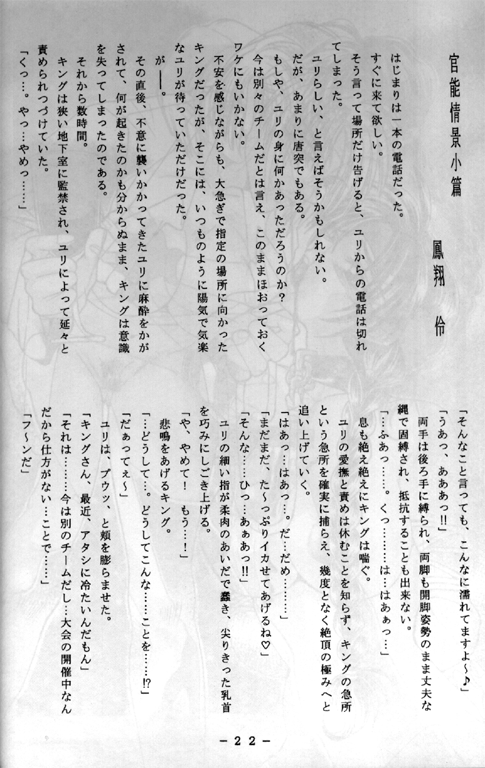 官能情景小篇
鳳翔 伶
はじまりは一本の電話だった。
すぐに来て欲しい。
そう言って場所だけ告げると、ユリからの電話は切れ
てしまった。
ユリらしい、と言えばそうかもしれない。
だが、あまりに唐突でもある。
もしや、ユリの身に何かあっただろうのか?
今は別々のチームだとは言え、このままほおっておく
ワケにもいかない。
不安を感じながらも、大急ぎで指定の場所に向かった
キングだったが、そこには、いつものように陽気で気楽
なユリが待っていただけだった。
が――。
その直後、不意に襲いかかってきたユリに麻酔をかが
されて、何が起きたのかも分からぬまま、キングは意識
を失ってしまったのである。
それから数時間。
キングは狭い地下室に監禁され、ユリによって延々と
責められつづけていた。
「くっ…。やっ…やめっ……」
「そんなこと言っても、こんなに濡れてますよ〜♪」
「うあっ、あああっ!!」
両手は後ろ手に縛られ、両脚も開脚姿勢のまま丈夫な
縄で固縛され、抵抗することも出来ない。
「…ふあっ…。くっ………は…はあぁっ…」
息も絶え絶えにキングは喘ぐ。
ユリの愛撫と責めは休むことを知らず、キングの急所
という急所を確実に捕らえ、幾度となく絶頂の極みへと
追い上げていく。
「はあっ…はあっ…。だ…だめ………」
「まだまだ、た〜っぷりイカせてあげるね♡」
「そんな……ひっ…あぁあっ!!」
ユリの細い指が柔肉のあいだで蠢き、尖りきった乳首
を巧みにしごき上げる。
「や、やめて! もう…!」
悲鳴をあげるキング。
「…どうして…。どうしてこんな……ことを……!?」
「だぁってぇ〜」
ユリは、プウッ、と頬を膨らませた。
「キングさん、最近、アタシに冷たいんだもん」
「それは………今は別のチームだし…大会の開催中なん
だから仕方がない…ことで……」
「フ〜ンだ」
-22-